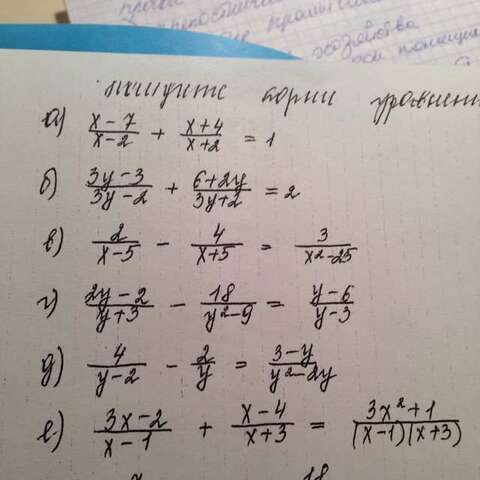 хозяйства
ищите корни уравнен
а) \frac{x-7}{x-2} + \frac{x+4}{x+2} = 1
б) \frac{3y-3}{3y-2} + \frac{6+2y}{3y+2} = 2
в) \frac{2}{x-5} - \frac{4}{x+5} = \frac{3}{x^2-25}
г) \frac{2y-2}{y+3} - \frac{18}{y^2-9} = \frac{y-6}{y-3}
д) \frac{4}{y-2} - \frac{2}{y} = \frac{3-y}{y^2-2y}
е) \frac{3x-2}{x-1} + \frac{x-4}{x+3} = \frac{3x^2+1}{(x-1)(x+3)}
x 18